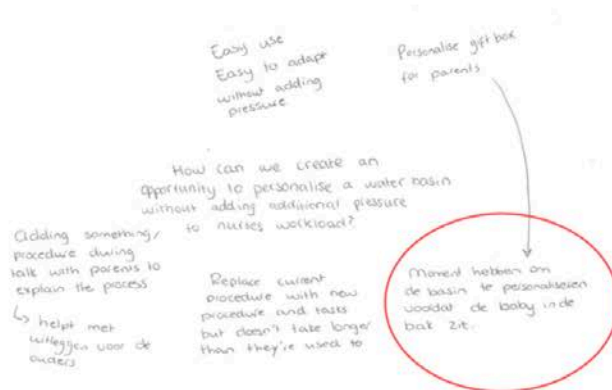 Easy use
Easy to adapt
without adding
pressure
Personalise giftbox
for parents
How can we create an
opportunity to personalise a water basin
without adding additional pressure
to nurses workload?
Adding something/
procedure during
talk with parents to
explain the process
↳ helpt met
uitleggen voor de
ouders
Replace current
procedure with new
procedure and tasks
but doesn't take longer
than they're used to
Moment hebben om
de basin te personaliseren
voordat de baby in de
bak zit.